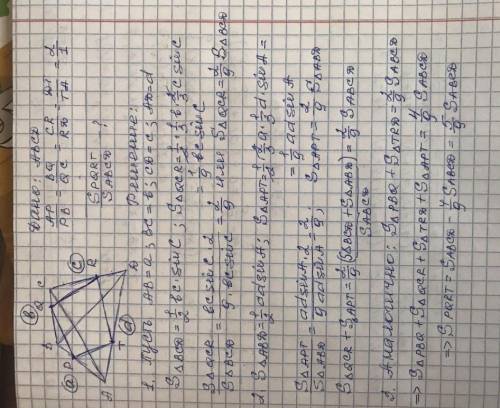 Дано: ABCD
AP/PB = BQ/QC = CR/RD = DT/TA = 2/1
S PQRT / S ABCD ?
B
Q
C
b
a
P
R
c
A
T
D
d
Решение:
1. Пусть AB=a; BC=b; CD=c; AD=d
S△BCD=1/2 bc·sinC; S△QCR=1/2·1/3 b·2/3 c sinC
= 1/9 bc sinC
S△QCR / S△BCD = bc sinC·2 / 9·bc sinC = 2/9 или S△QCR=2/9 S△BCD
2. S△ABD=1/2 ad sinA; S△APT=1/2·2/3 a·1/3 d·sinA=
= 1/9 ad sinA
S△APT / S△ABD = ad sinA·2 / 9 ad sinA = 2/9; S△APT = 2/9 S△ABD
S△QCR+S△APT=2/9(S△BCD+S△ABD)=2/9 SABCD
SABCD
3. Аналогично: S△PBQ+S△TRD=2/9 SABCD
=> S△PBQ+S△QCR+S△TRD+S△APT=4/9 SABCD
=> SPQRT=SABCD-4/9 SABCD=5/9 SABCD